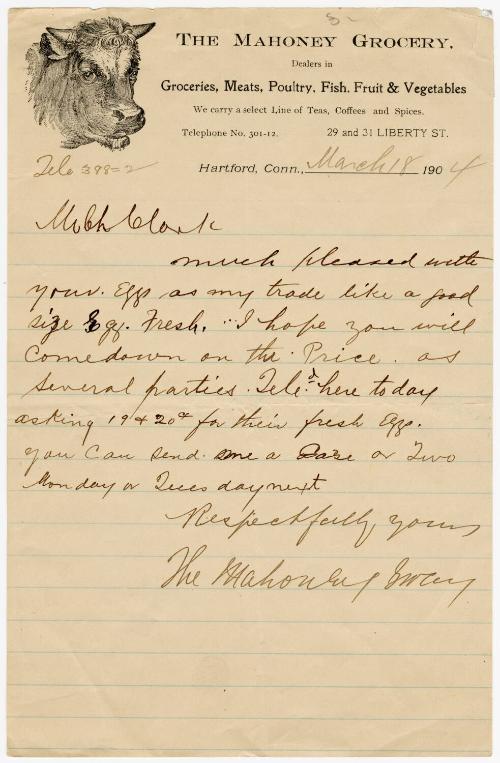 The Mahoney Grocery.
Dealers in
Groceries, Meats, Poultry, Fish, Fruit & Vegetables
We carry a select Line of Teas, Coffees and Spices.
Telephone No. 301-12. 29 and 31 LIBERTY ST.
Tele 398=2
Hartford, Conn., March 18 1904
Clark
much pleased with
your. Eggs as my trade like a good
size Egg. Fresh. I hope you will
Come down on the Price. as
Several parties. Tele.d here today
asking 19 & 20¢ for their fresh Eggs.
you Can send me a Case or Two
Monday or Tuesday next
Respectfully yours
The Mahoney Grocery